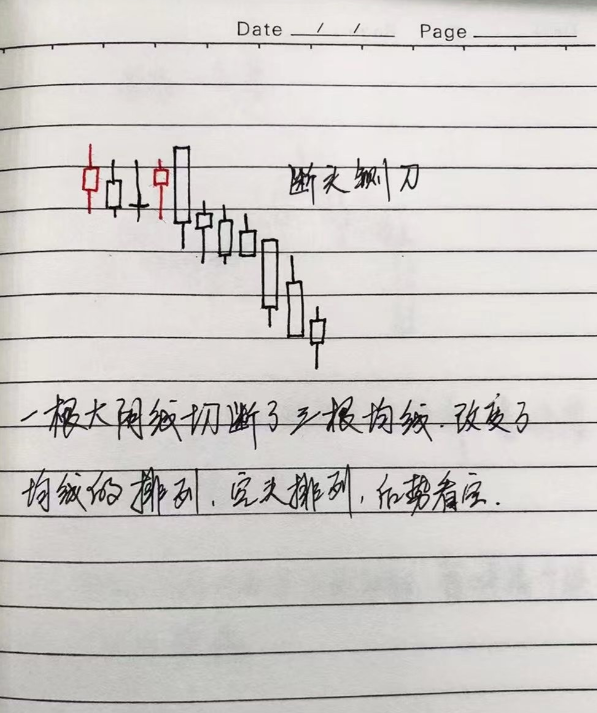 Date / / Page
断头铡刀
一根大阴线切断了三根均线.改变了
均线的排列.空头排列,后势看空.